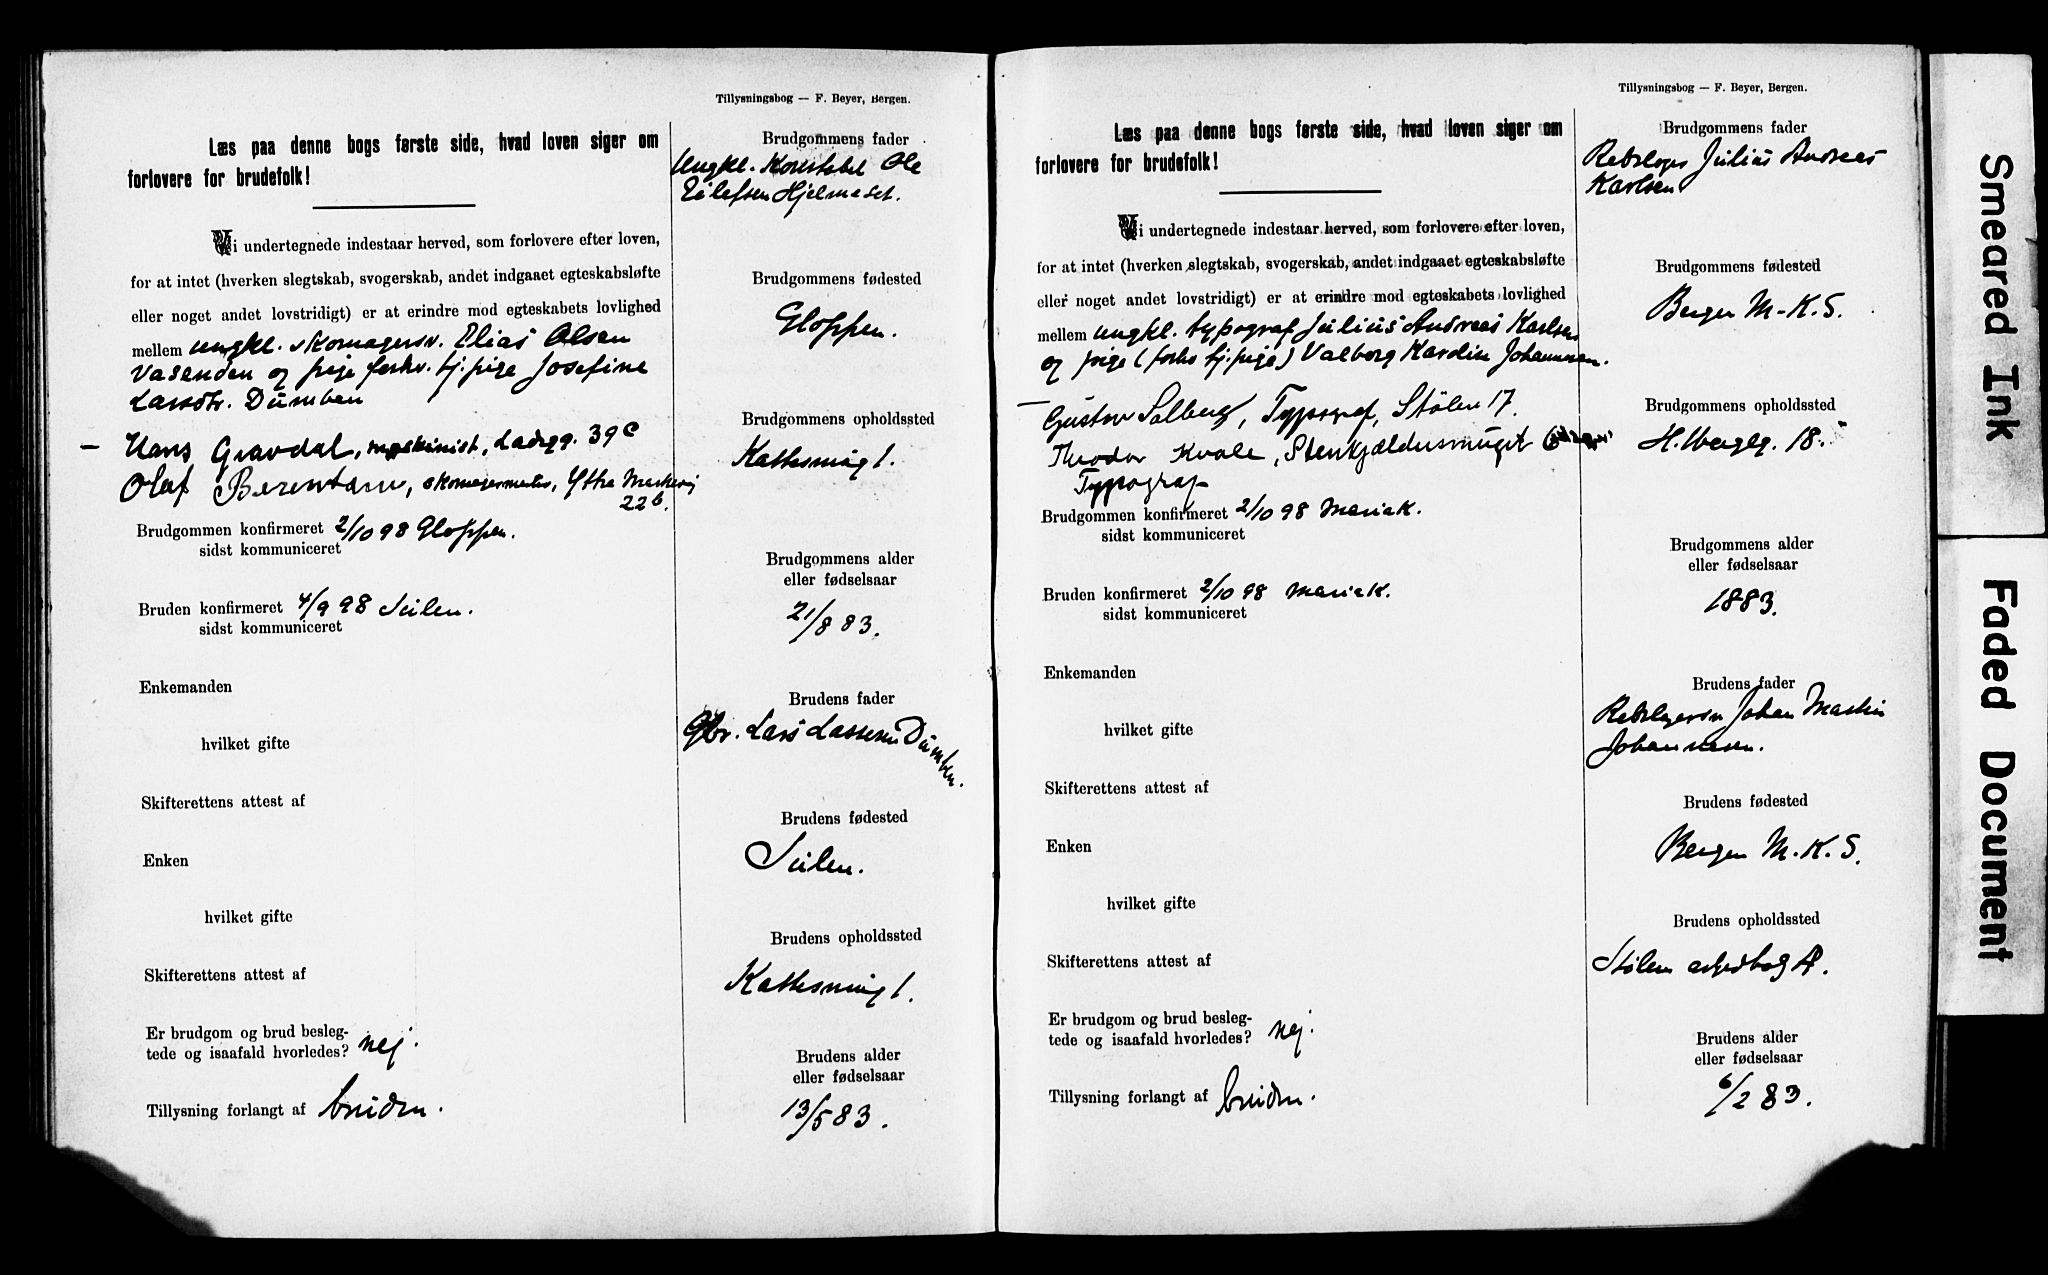 Tillysningsbog — F. Beyer, Bergen.
Læs paa denne bogs første side, hvad loven siger om
forlovere for brudefolk!
Vi undertegnede indestaar herved, som forlovere efter loven,
for at intet (hverken slegtskab, svogerskab, andet indgaaet egteskabsløfte
eller noget andet lovstridigt) er at erindre mod egteskabets lovlighed
mellem ungkl. skomagersv. Elias Olsen
Vasenden og pige forhv. tj. pige Josefine
Larsdtr. Dumben
Hans Gravdal, maskinist, Ladegg. 39 c
Olaf Berentsen, skomagermester, Ytre Markevej
22 b.
Brudgommen konfirmeret 2/10 98 Gloppen.
sidst kommuniceret
Bruden konfirmeret 4/9 98 Sulen.
sidst kommuniceret
Enkemanden
hvilket gifte
Skifterettens attest af
Enken
hvilket gifte
Skifterettens attest af
Er brudgom og brud besleg-
tede og isaafald hvorledes? nej.
Tillysning forlangt af bruden.
Brudgommens fader
Ungkl. Konstabel Ole
Eilefsen Hjelmeset.
Brudgommens fødested
Gloppen.
Brudgommens opholdssted
Kattesmug 1.
Brudgommens alder
eller fødselsaar
21/8 83.
Brudens fader
Gbr. Lars Lassesen Dumben.
Brudens fødested
Sulen.
Brudens opholdssted
Kattesmug 1.
Brudens alder
eller fødselsaar
13/5 83.
Tillysningsbog — F. Beyer, Bergen.
Læs paa denne bogs første side, hvad loven siger om
forlovere for brudefolk!
Vi undertegnede indestaar herved, som forlovere efter loven,
for at intet (hverken slegtskab, svogerskab, andet indgaaet egteskabsløfte
eller noget andet lovstridigt) er at erindre mod egteskabets lovlighed
mellem ungkl. typograf Julius Andreas Karlsen
og pige (forhv tj. pige) Valborg Karoline Johannesen.
Gustav Solberg, Typograf, Stølen 17.
Theodor Kvale, Stenkjældersmuget
Typograf
Brudgommen konfirmeret 2/10 98 Mariak.
sidst kommuniceret
Bruden konfirmeret 2/10 98 Mariak.
sidst kommuniceret
Enkemanden
hvilket gifte
Skifterettens attest af
Enken
hvilket gifte
Skifterettens attest af
Er brudgom og brud besleg-
tede og isaafald hvorledes? nej.
Tillysning forlangt af bruden.
Brudgommens fader
Rebslager Julius Andreas
Karlsen
Brudgommens fødested
Bergen M-K.S.
Brudgommens opholdssted
H. Wergelg. 18.
Brudgommens alder
eller fødselsaar
1883.
Brudens fader
Rebslagersv Johan Martin
Johannesen.
Brudens fødested
Bergen M.K.S.
Brudens opholdssted
Stølen arbedbog A.
Brudens alder
eller fødselsaar
6/2 83.
Smeared Ink
Faded Document